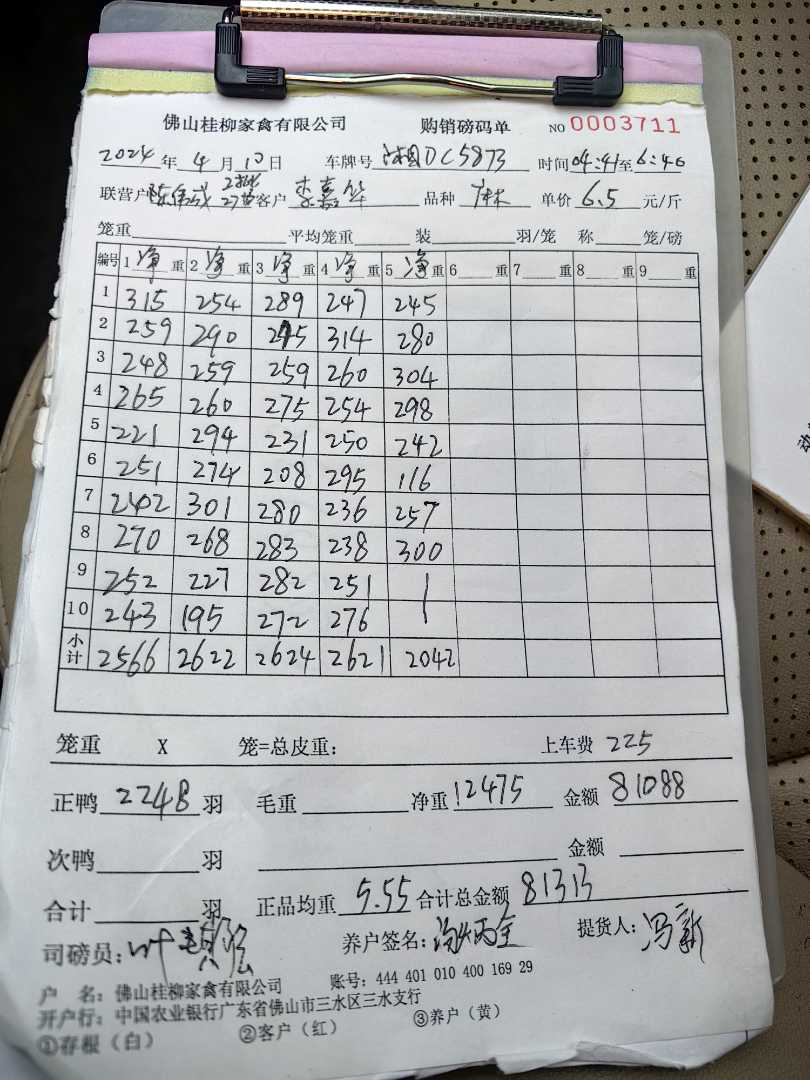 佛山桂柳家禽有限公司 购销磅码单 NO 0003711
2024年 4月 10日 车牌号 DC5873 时间04:41至6:40
联营户 客户 李嘉 品种 单价 6.5 元/斤
笼重 平均笼重 装 羽/笼 称 笼/磅
编号 1净重 2净重 3净重 4净重 5净重 6 重 7 重 8 重 9 重
1 315 254 289 247 245
2 259 290 245 314 280
3 248 259 259 260 304
4 265 260 275 254 298
5 221 294 231 250 242
6 251 274 208 295 116
7 242 301 280 236 257
8 270 268 283 238 300
9 252 227 282 251
10 243 195 272 276
小计 2566 2622 2624 2621 2042
笼重 X 笼=总皮重: 上车费 225
正鸭 2248 羽 毛重 净重 12475 金额 81088
次鸭 羽 金额
合计 羽 正品均重 5.55 合计总金额 81313
司磅员: 叶 养户签名: 提货人: 冯新
户 名: 佛山桂柳家禽有限公司 账号: 444 401 010 400 169 29
开户行: 中国农业银行广东省佛山市三水区三水支行
①存根(白) ②客户(红) ③养户(黄)